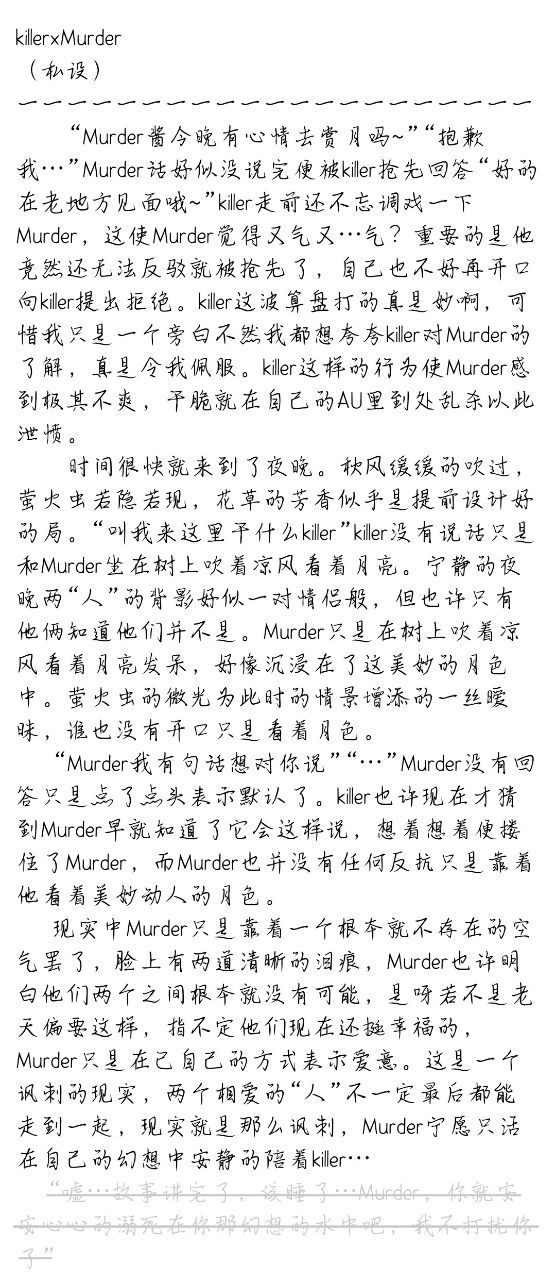 killerxMurder
（私设）
————————————————————
“Murder酱今晚有心情去赏月吗~”“抱歉
我…”Murder话好似没说完便被killer抢先回答“好的
在老地方见面哦~”killer走前还不忘调戏一下
Murder，这使Murder觉得又气又…气？重要的是他
竟然还无法反驳就被抢先了，自己也不好再开口
向killer提出拒绝。killer这波算盘打的真是妙啊，可
惜我只是一个旁白不然我都想夸夸killer对Murder的
了解，真是令我佩服。killer这样的行为使Murder感
到极其不爽，干脆就在自己的AU里到处乱杀以此
泄愤。
时间很快就来到了夜晚。秋风缓缓的吹过，
萤火虫若隐若现，花草的芳香似乎是提前设计好
的局。“叫我来这里干什么killer”killer没有说话只是
和Murder坐在树上吹着凉风看着月亮。宁静的夜
晚两“人”的背影好似一对情侣般，但也许只有
他俩知道他们并不是。Murder只是在树上吹着凉
风看着月亮发呆，好像沉浸在了这美妙的月色
中。萤火虫的微光为此时的情景增添的一丝暧
昧，谁也没有开口只是看着月色。
“Murder我有句话想对你说”“…”Murder没有回
答只是点了点头表示默认了。killer也许现在才猜
到Murder早就知道了它会这样说，想着想着便搂
住了Murder，而Murder也并没有任何反抗只是靠着
他看着美妙动人的月色。
现实中Murder只是靠着一个根本就不存在的空
气罢了，脸上有两道清晰的泪痕，Murder也许明
白他们两个之间根本就没有可能，是呀若不是老
天偏要这样，指不定他们现在还挺幸福的，
Murder只是在已自己的方式表示爱意。这是一个
讽刺的现实，两个相爱的“人”不一定最后都能
走到一起，现实就是那么讽刺，Murder宁愿只活
在自己的幻想中安静的陪着killer…
“嘘…故事讲完了，该睡了…Murder，你就安
安心心的溺死在你那幻想的水中吧，我不打扰你
了”